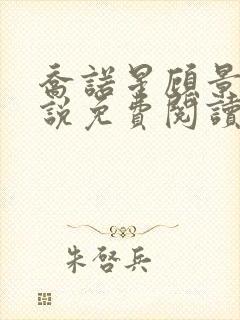 喬諾星顧景
說免費閱讀
朱啓兵